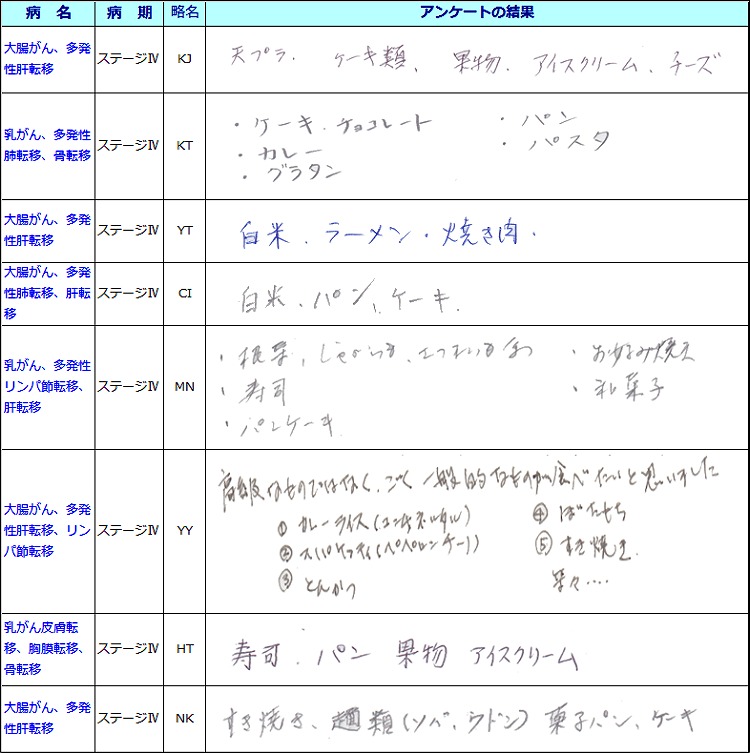 病 名 病 期 略名 アンケートの結果
大腸がん、多発
性肝転移
ステージⅣ
KJ
天プラ. ケーキ類、果物. アイスクリーム、チーズ
乳がん、多発性
肺転移、骨転移
ステージⅣ
KT
・ケーキ、チョコレート ・パン
・カレー ・パスタ
・グラタン
大腸がん、多発
性肝転移
ステージⅣ
YT
白米、ラーメン・焼き肉・
大腸がん、多発
性肺転移、肝転
移
ステージⅣ
CI
白米、パン、ケーキ.
乳がん、多発性
リンパ節転移、
肝転移
ステージⅣ
MN
・根菜, じゃがいも、さつまいも ・お好み焼き
・寿司 ・和菓子
・パンケーキ
大腸がん、多発
性肝転移、リン
パ節転移
ステージⅣ
YY
高級なものではなく、ごく一般的なものが食べたいと思いました
① カレーライス ④ ぼたもち
② スパゲッティ(ペペロンチーノ) ⑤ すき焼き.
③ とんかつ 等々‥‥
乳がん皮膚転
移、胸膜転移、
骨転移
ステージⅣ
HT
寿司. パン 果物 アイスクリーム
大腸がん、多発
性肝転移
ステージⅣ
NK
すき焼き、麺類(ソバ、ウドン) 菓子パン、ケーキ